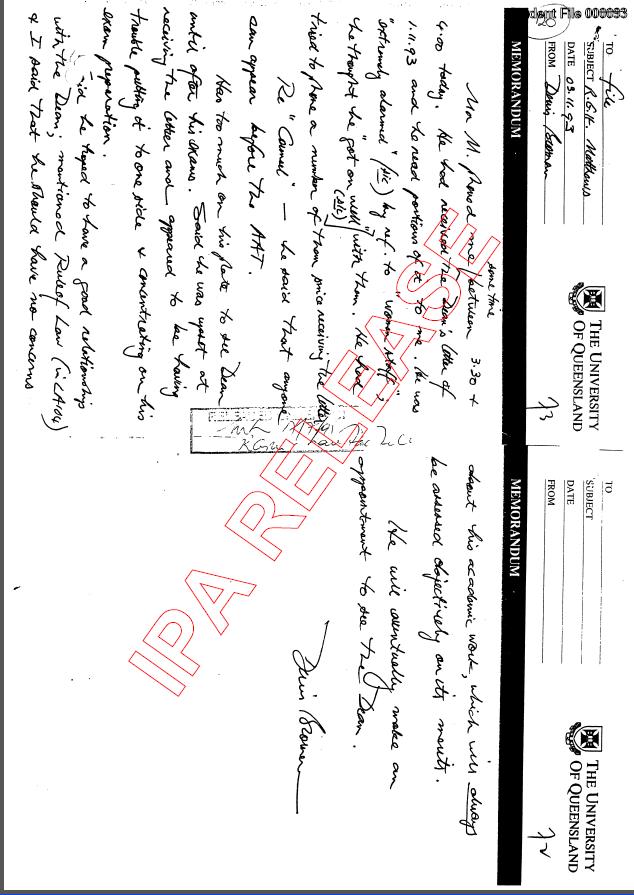 dent File 000093
MEMORANDUM
THE UNIVERSITY
OF QUEENSLAND
73
TO File
SUBJECT R.G.H. Matthews
DATE 03.11.93
FROM Denis
some time
Mr M. phoned me between 3.30 &
4.00 today. He had received the Dean's letter of
1.11.93 and he read portions of it to me. He was
"extremely alarmed" (sic) by ref. to "women staff";
he thought he "got on well" with them. He had
(sic)
tried to phone a number of them since receiving the letter
Re "Counsel" — he said that anyone
can appear before the AAT.
Has too much on his plate to see Dean
until after his exams. Said he was upset at
receiving the letter and appeared to be having
trouble putting it to one side & concentrating on his
exam preparation.
he hoped to have a good relationship
with the Dean; mentioned Rule of Law
& I said that he should have no concerns
MEMORANDUM
THE UNIVERSITY
OF QUEENSLAND
72
TO
SUBJECT
DATE
FROM
about his academic work, which will always
be assessed objectively on its merits.
He will eventually make an
appointment to see the Dean.
Denis
IPA RELEASE